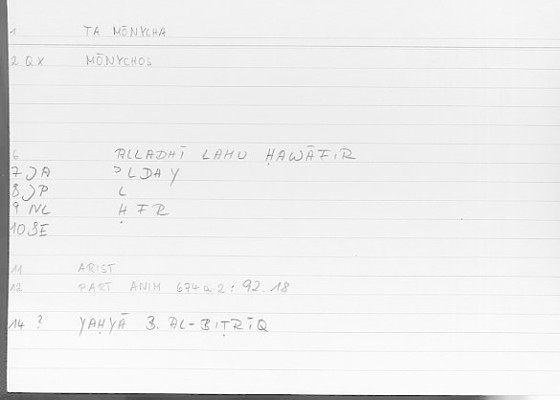 1 TA MŌNYCHA
2 QX MŌNYCHOS
6 ALLADHĪ LAHU ḤAWĀFIR
7 JA ʾLDAY
8 JP L
9 NL ḤFR
10 SE
11 ARIST
12 PART ANIM 674a2: 92.18
14 ? YAḤYĀ B. AL-BIṬRĪQ